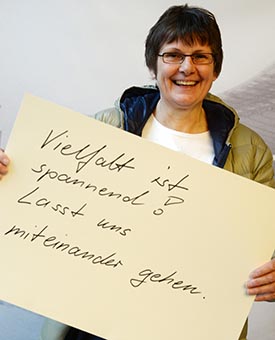 Vielfalt ist
spannend!
Lasst uns
miteinander gehen.